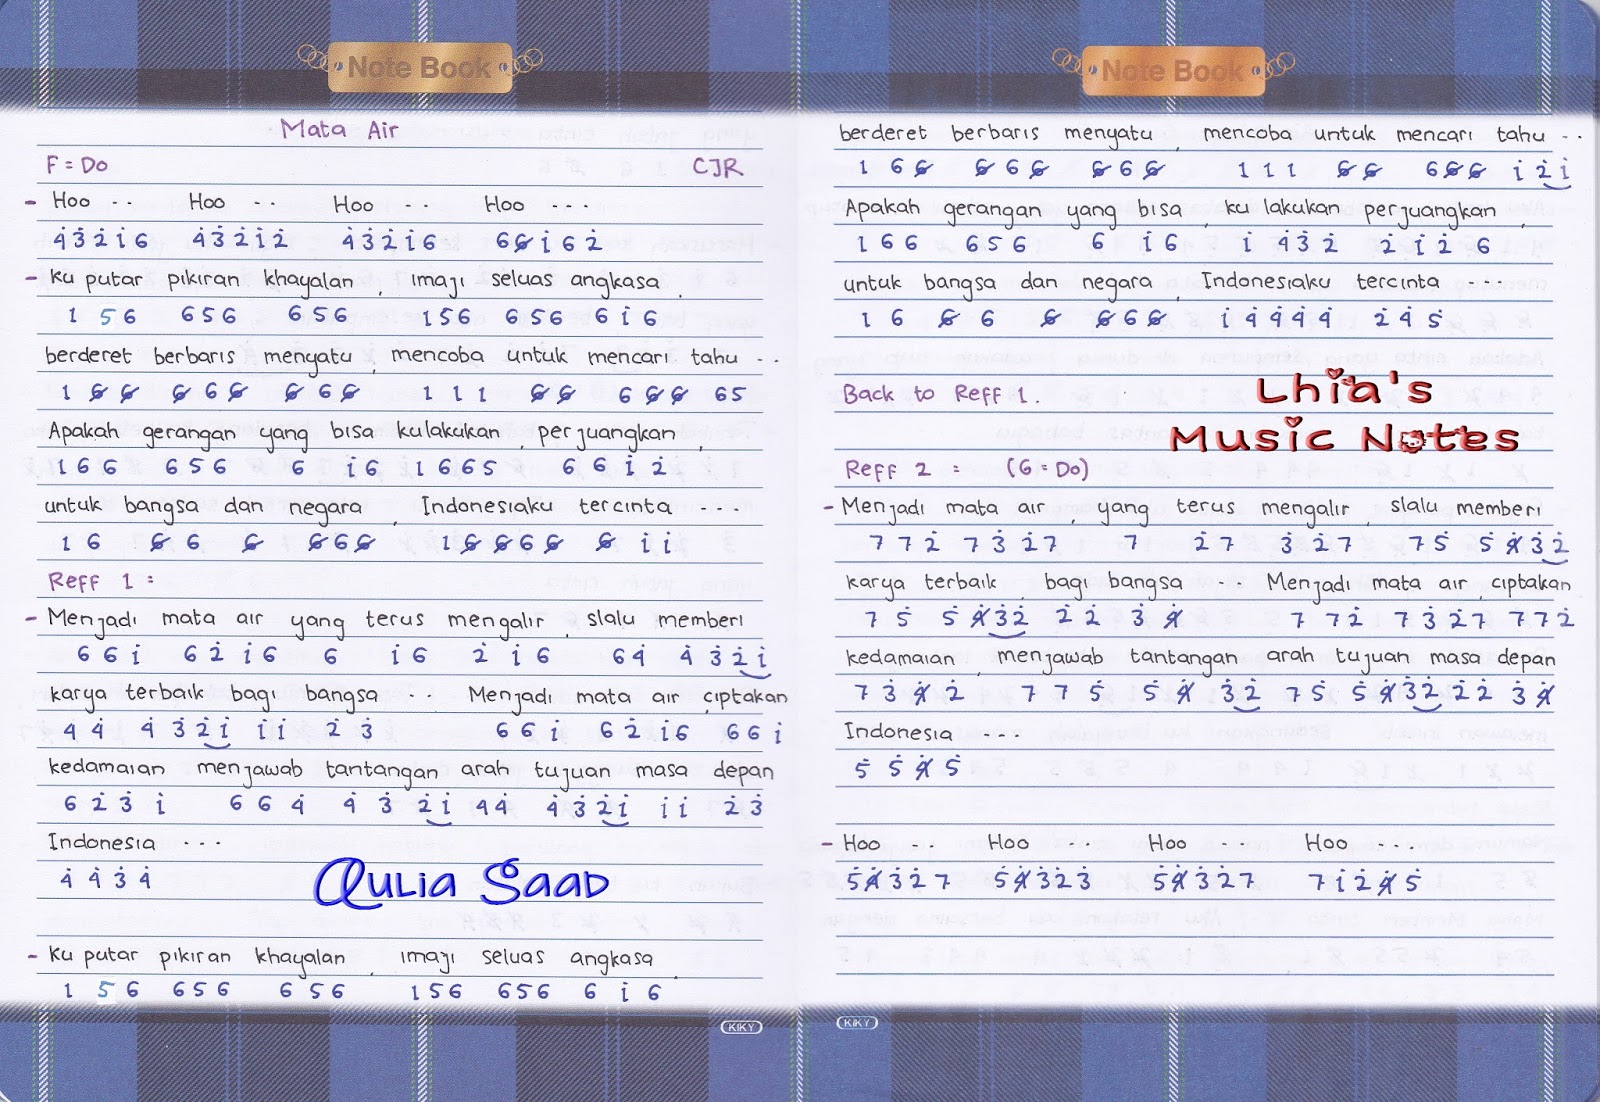 Note Book
Mata Air
F = Do CJR
- Hoo .. Hoo .. Hoo .. Hoo ...
4̇3̇2̇1̇6 4̇3̇2̇1̇2̇ 4̇3̇2̇1̇6 66̸1̇62̇
- Ku putar pikiran khayalan, imaji seluas angkasa,
1 5 6 6 5 6 6 5 6 1 5 6 6 5 6 6 1̇ 6
berderet berbaris menyatu, mencoba untuk mencari tahu ..
1 6̸ 6̸ 6̸ 6 6̸ 6̸ 6 6̸ 1 1 1 6̸ 6̸ 6 6̸ 6̸ 65
Apakah gerangan yang bisa kulakukan, perjuangkan,
1 6 6 6 5 6 6 1̇ 6 1 6 6 5 6 6 1̇ 2̇
untuk bangsa dan negara, Indonesiaku tercinta ...
1 6 6̸ 6 6̸ 6̸ 6 6̸ 1 6̸ 6̸ 6 6̸ 6̸ 1̇ 1̇
Reff 1 :
- Menjadi mata air yang terus mengalir, slalu memberi
6 6 1̇ 6 2̇ 1̇ 6 6 1̇ 6 2̇ 1̇ 6 6 4̇ 4̇ 3̇ 2̇ 1̇
karya terbaik bagi bangsa .. Menjadi mata air, ciptakan
4̇ 4̇ 4̇ 3̇ 2̇ 1̇ 1̇ 1̇ 2̇ 3̇ 6 6 1̇ 6 2̇ 1̇ 6 6 6 1̇
kedamaian menjawab tantangan arah tujuan masa depan
6 2̇ 3̇ 1̇ 6 6 4̇ 4̇ 3̇ 2̇ 1̇ 4̇ 4̇ 4̇ 3̇ 2̇ 1̇ 1̇ 1̇ 2̇ 3̇
Indonesia ...
4̇ 4̇ 3̇ 4̇
Qulia Saab
- Ku putar pikiran khayalan, imaji seluas angkasa,
1 5 6 6 5 6 6 5 6 1 5 6 6 5 6 6 1̇ 6
KIKY
Note Book
berderet berbaris menyatu, mencoba untuk mencari tahu ..
1 6 6̸ 6̸ 6 6̸ 6̸ 6 6̸ 1 1 1 6̸ 6̸ 6 6̸ 6̸ 1̇ 2̇ 1̇
Apakah gerangan yang bisa, ku lakukan perjuangkan,
1 6 6 6 5 6 6 1̇ 6 1̇ 4̇ 3̇ 2̇ 2̇ 1̇ 2̇ 6
untuk bangsa dan negara, Indonesiaku tercinta ...
1 6 6̸ 6 6̸ 6̸ 6 6̸ 1̇ 4̇ 4̇ 4̇ 4̇ 2̇ 4̇ 5̇
Back to Reff 1.
Lhia's
Music Notes
Reff 2 : (G = Do)
- Menjadi mata air, yang terus mengalir, slalu memberi
7 7 2̇ 7 3̇ 2̇ 7 7 2̇ 7 3̇ 2̇ 7 7 5̇ 5̇ 4̸̇ 3̇ 2̇
karya terbaik, bagi bangsa .. Menjadi mata air, ciptakan
7 5̇ 5̇ 4̸̇ 3̇ 2̇ 2̇ 2̇ 3̇ 4̸̇ 7 7 2̇ 7 3̇ 2̇ 7 7 7 2̇
kedamaian, menjawab tantangan arah tujuan masa depan
7 3̇ 4̸̇ 2̇ 7 7 5̇ 5̇ 4̸̇ 3̇ 2̇ 7 5̇ 5̇ 4̸̇ 3̇ 2̇ 2̇ 2̇ 3̇ 4̸̇
Indonesia ...
5̇ 5̇ 4̸̇ 5̇
- Hoo .. Hoo .. Hoo .. Hoo ...
5̇ 4̸̇ 3̇ 2̇ 7 5̇ 4̸̇ 3̇ 2̇ 3̇ 5̇ 4̸̇ 3̇ 2̇ 7 7 1̇ 2̇ 4̸̇ 5̇
KIKY